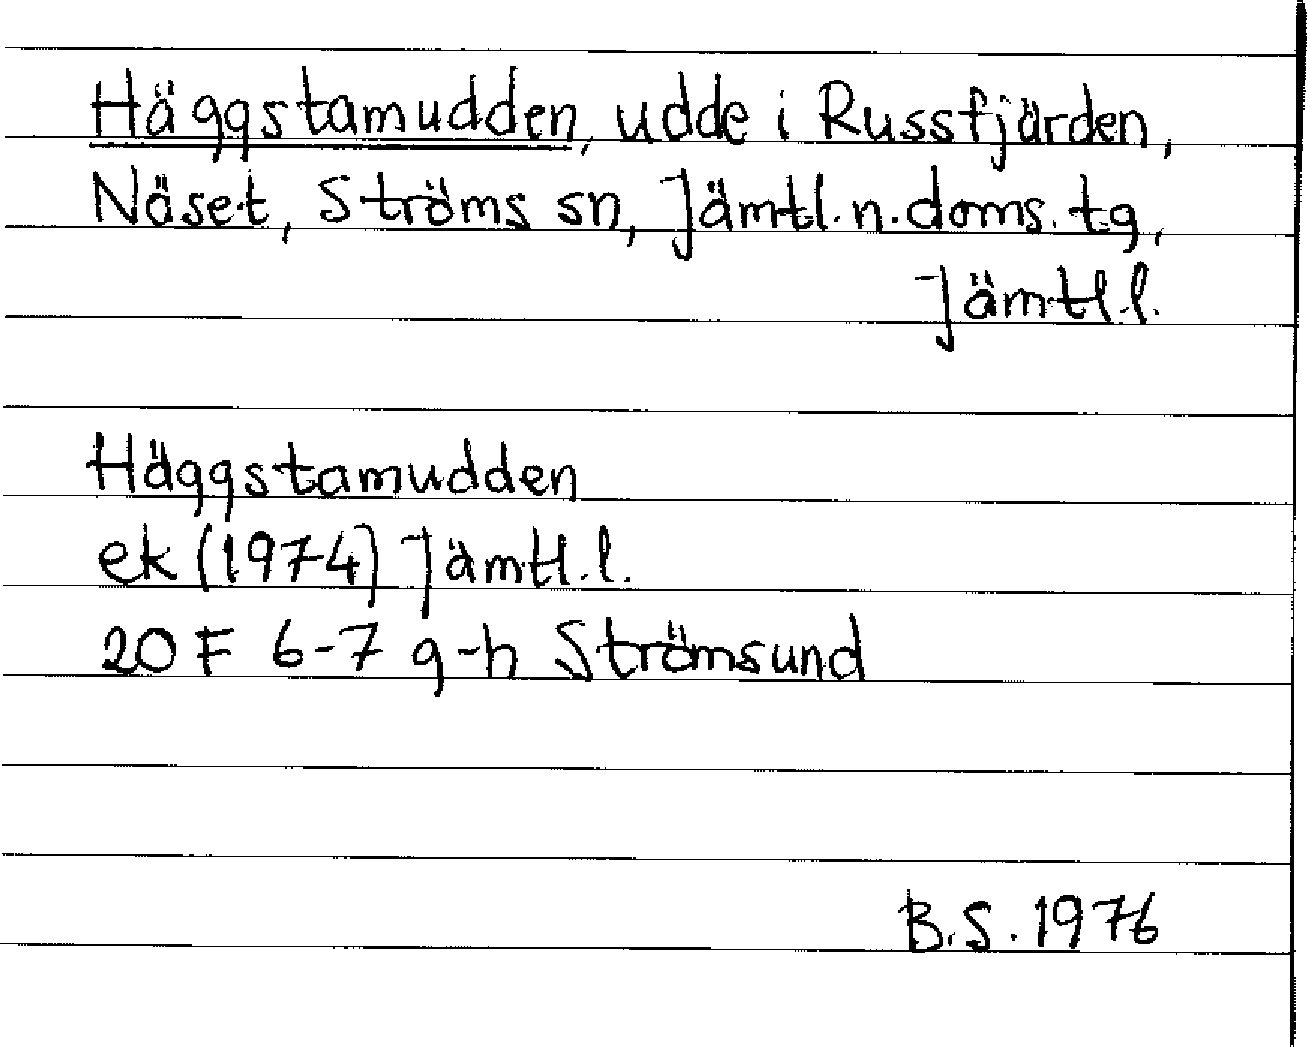 Häggstamudden, udde i Russfjärden,
Näset, Ströms sn, Jämtl.n.doms.tg,
Jämtl.l.
Häggstamudden
ek (1974) Jämtl.l.
20 F 6-7 g-h Strömsund
B.S. 1976